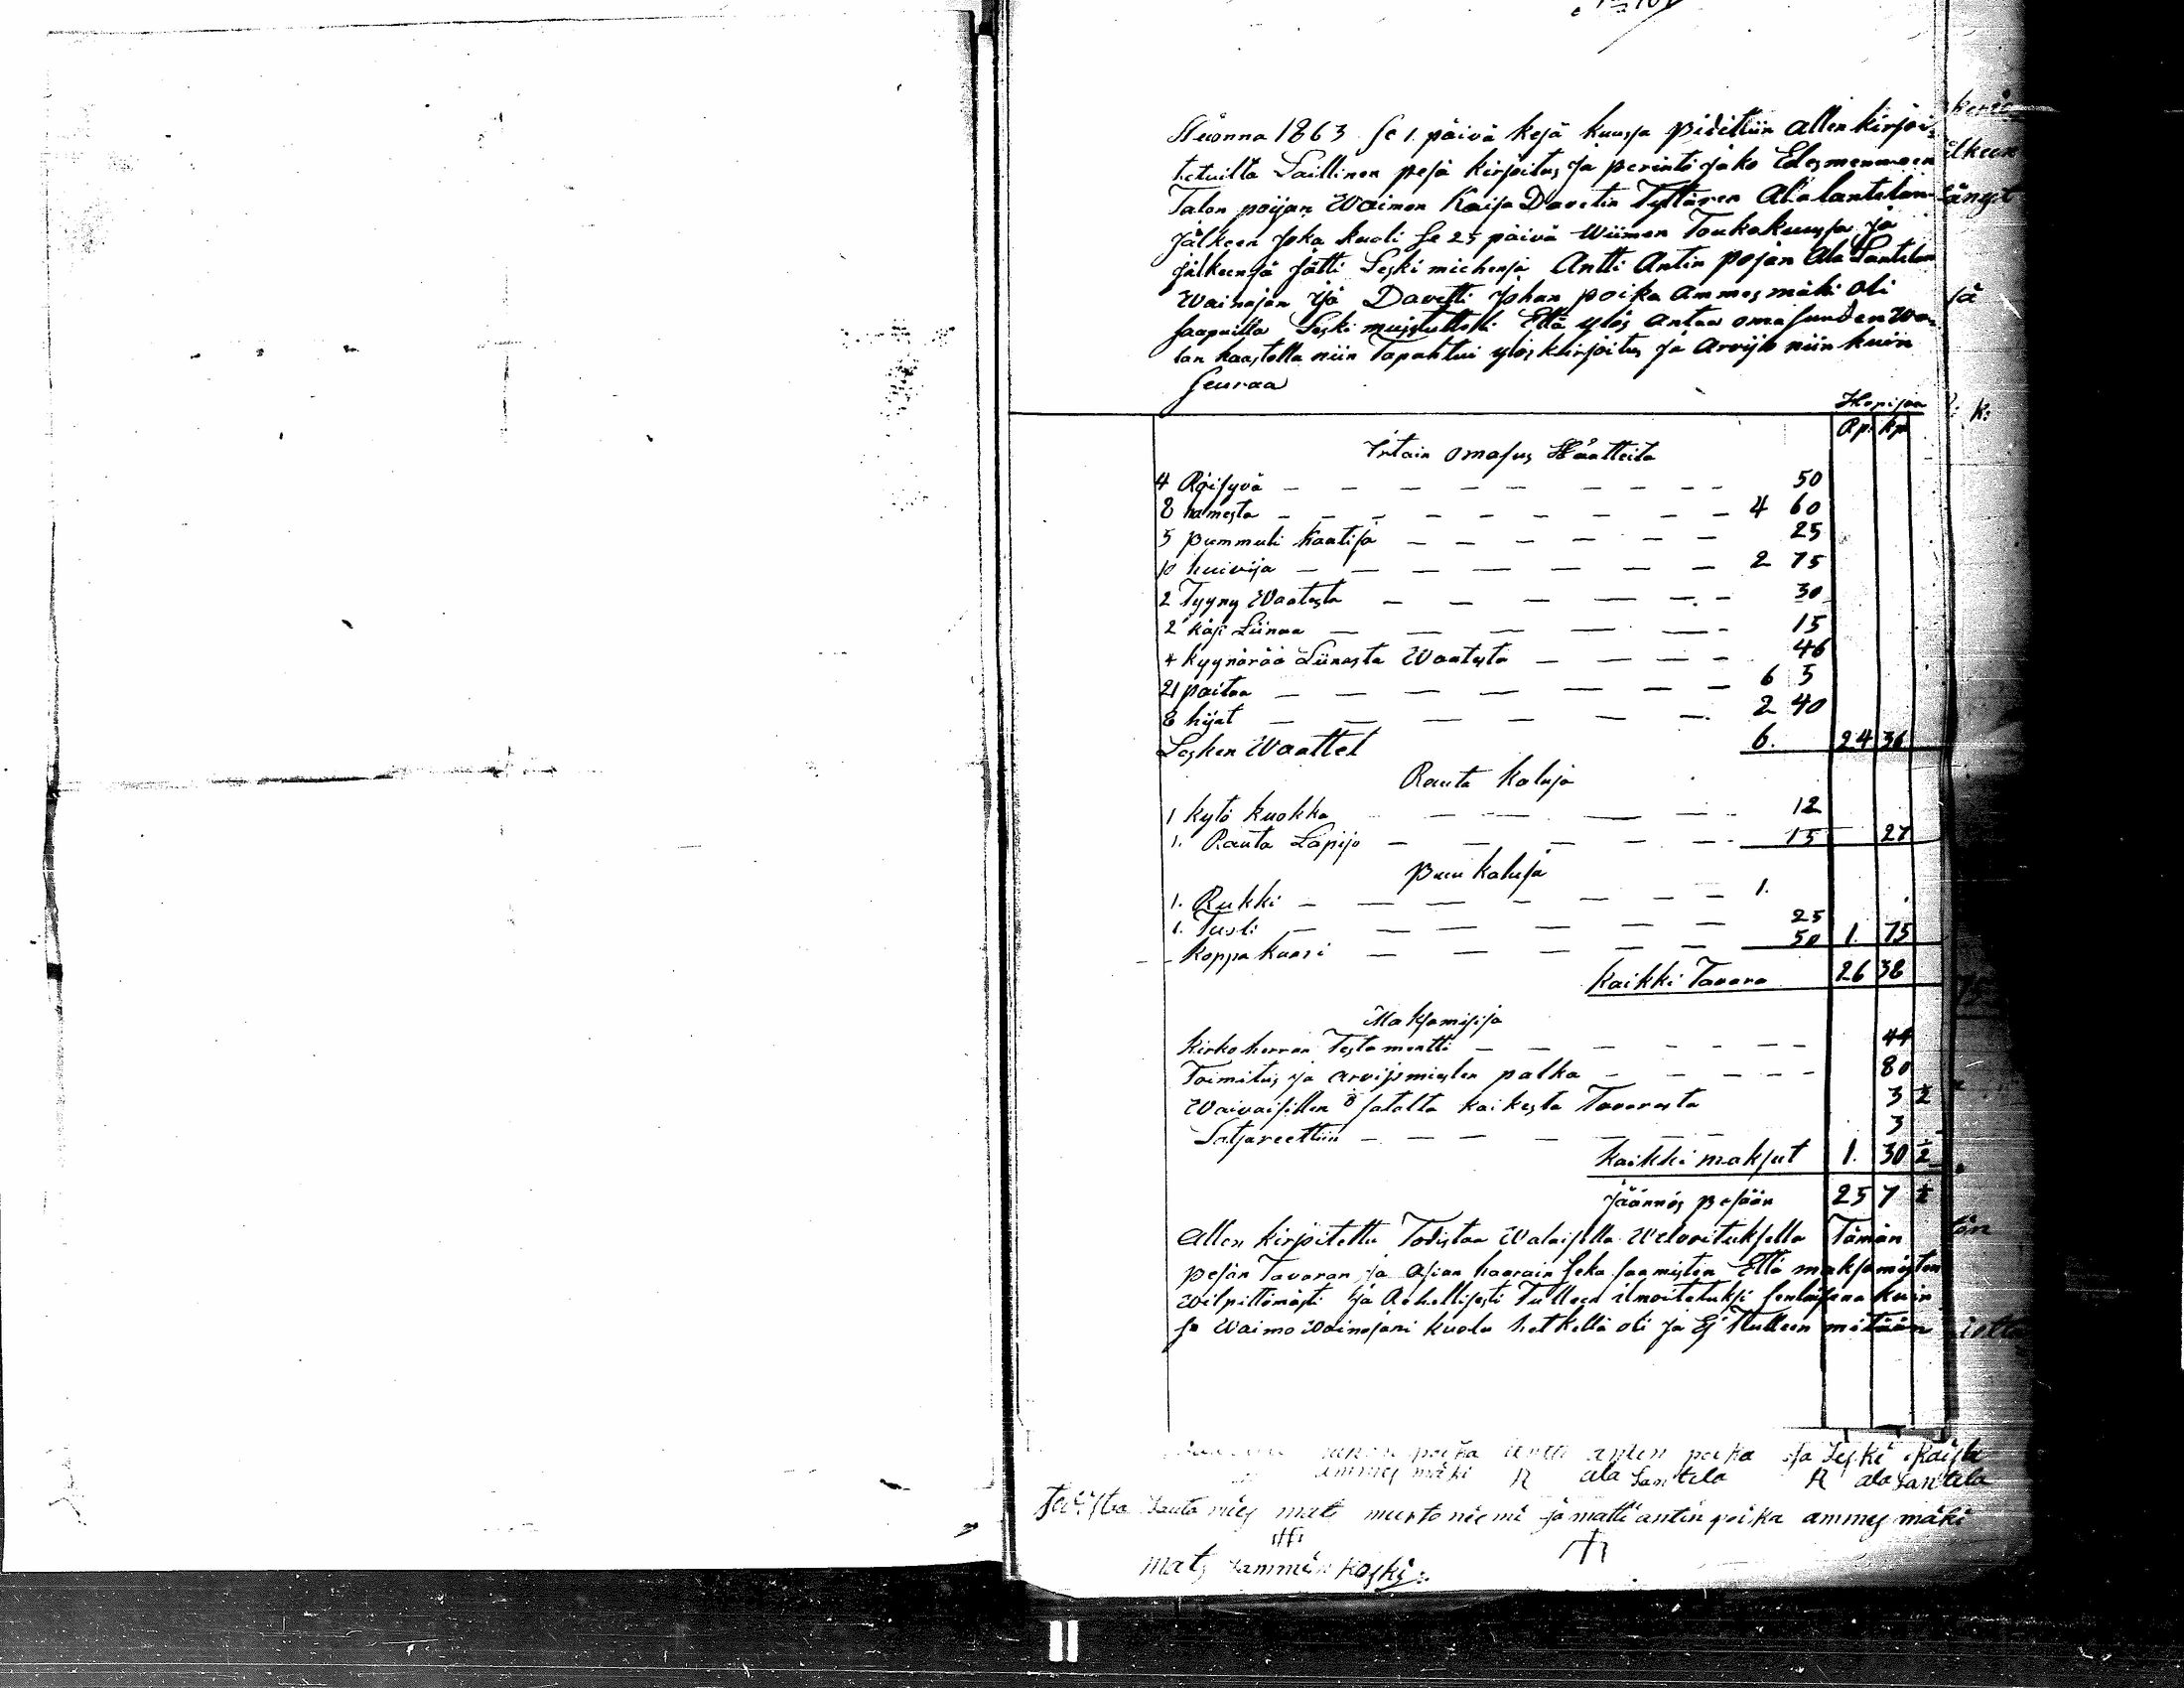 Wuonna 1863 se 1. päivä kesä kuussa pidettiin allen kirjoi-
tetuilta Laillinen pesä kirjoitus ja perintö jako Edesmenneen
Talon poijan Waimon Kaisa Davetin Tyttären Ala lantelan
Jälkeen Joka kuoli se 25 päivä Wiimen Toukokuussa ja
jälkeensä Jätti Leski miehensä Antti Antin pojan Ala Lantelan
Wainajan isä Davetti Johan poika Ammesmäki oli
saapuilla Leski muistutetti Että ylös antaa omasuuden Wa-
lan haastolla niin Tapahtui ylöskirjoitus ja Arvijo niin kuin
seuraa
Hopijaa
Rp. kp.
Irtain omasus Waatteita
4 Röijyvä — 50
8 hamesta — 4 60
5 pummuli kaatija — 25
10 huivija — 2 75
2 Tyyny Waatesta — 30
2 käsi Liinaa — 15
4 kyynärää Liinasta Waatesta — 46
21 paitaa — 6 5
8 hijat — 2 40
Lesken Waattet 6. 24 36
Rauta kaluja
1 kytö kuokka — 12
1. Rauta Lapijo — 15 27
puu kaluja
1. Rukki — 1.
1. Tuoli — 25
koppa kaari — 50 1. 75
kaikki Tavara 26 38
Maksamisija
kirkoherran Testamentti — 44
Toimitus ja arvijomiesten palka — 80
Waivaisillen 8 satalta kaikesta Tavarasta 3 ½
Latsareettiin — 3
kaikki maksut 1. 30 ½
Jäännös pesään 25 7 ½
Allen kirjoitettu Todistaa Walaisella Welvoituksella Tämän
pesän Tavaran ja Asian haarain seka saamisten Että maksamisten
Wilpittömästi ja Rehellisesti Tulleen ilmoitetuksi senlaisena kuin
se Waimo Wainajani kuolu hetkellä oli ja Ej Tulleen mitään
poika antti anten poika ja Leski Kaisla
ammes mäki R ala Lantela R ala Lantela
Todistaa Lauta mies mats murto niemi ja matti antin poika ammes mäki
mats Lammin koski